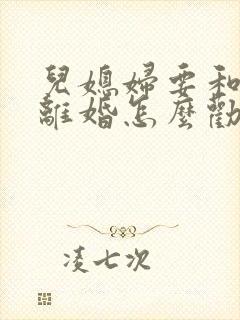 兒媳婦要和
離婚怎麼勸
凌七次